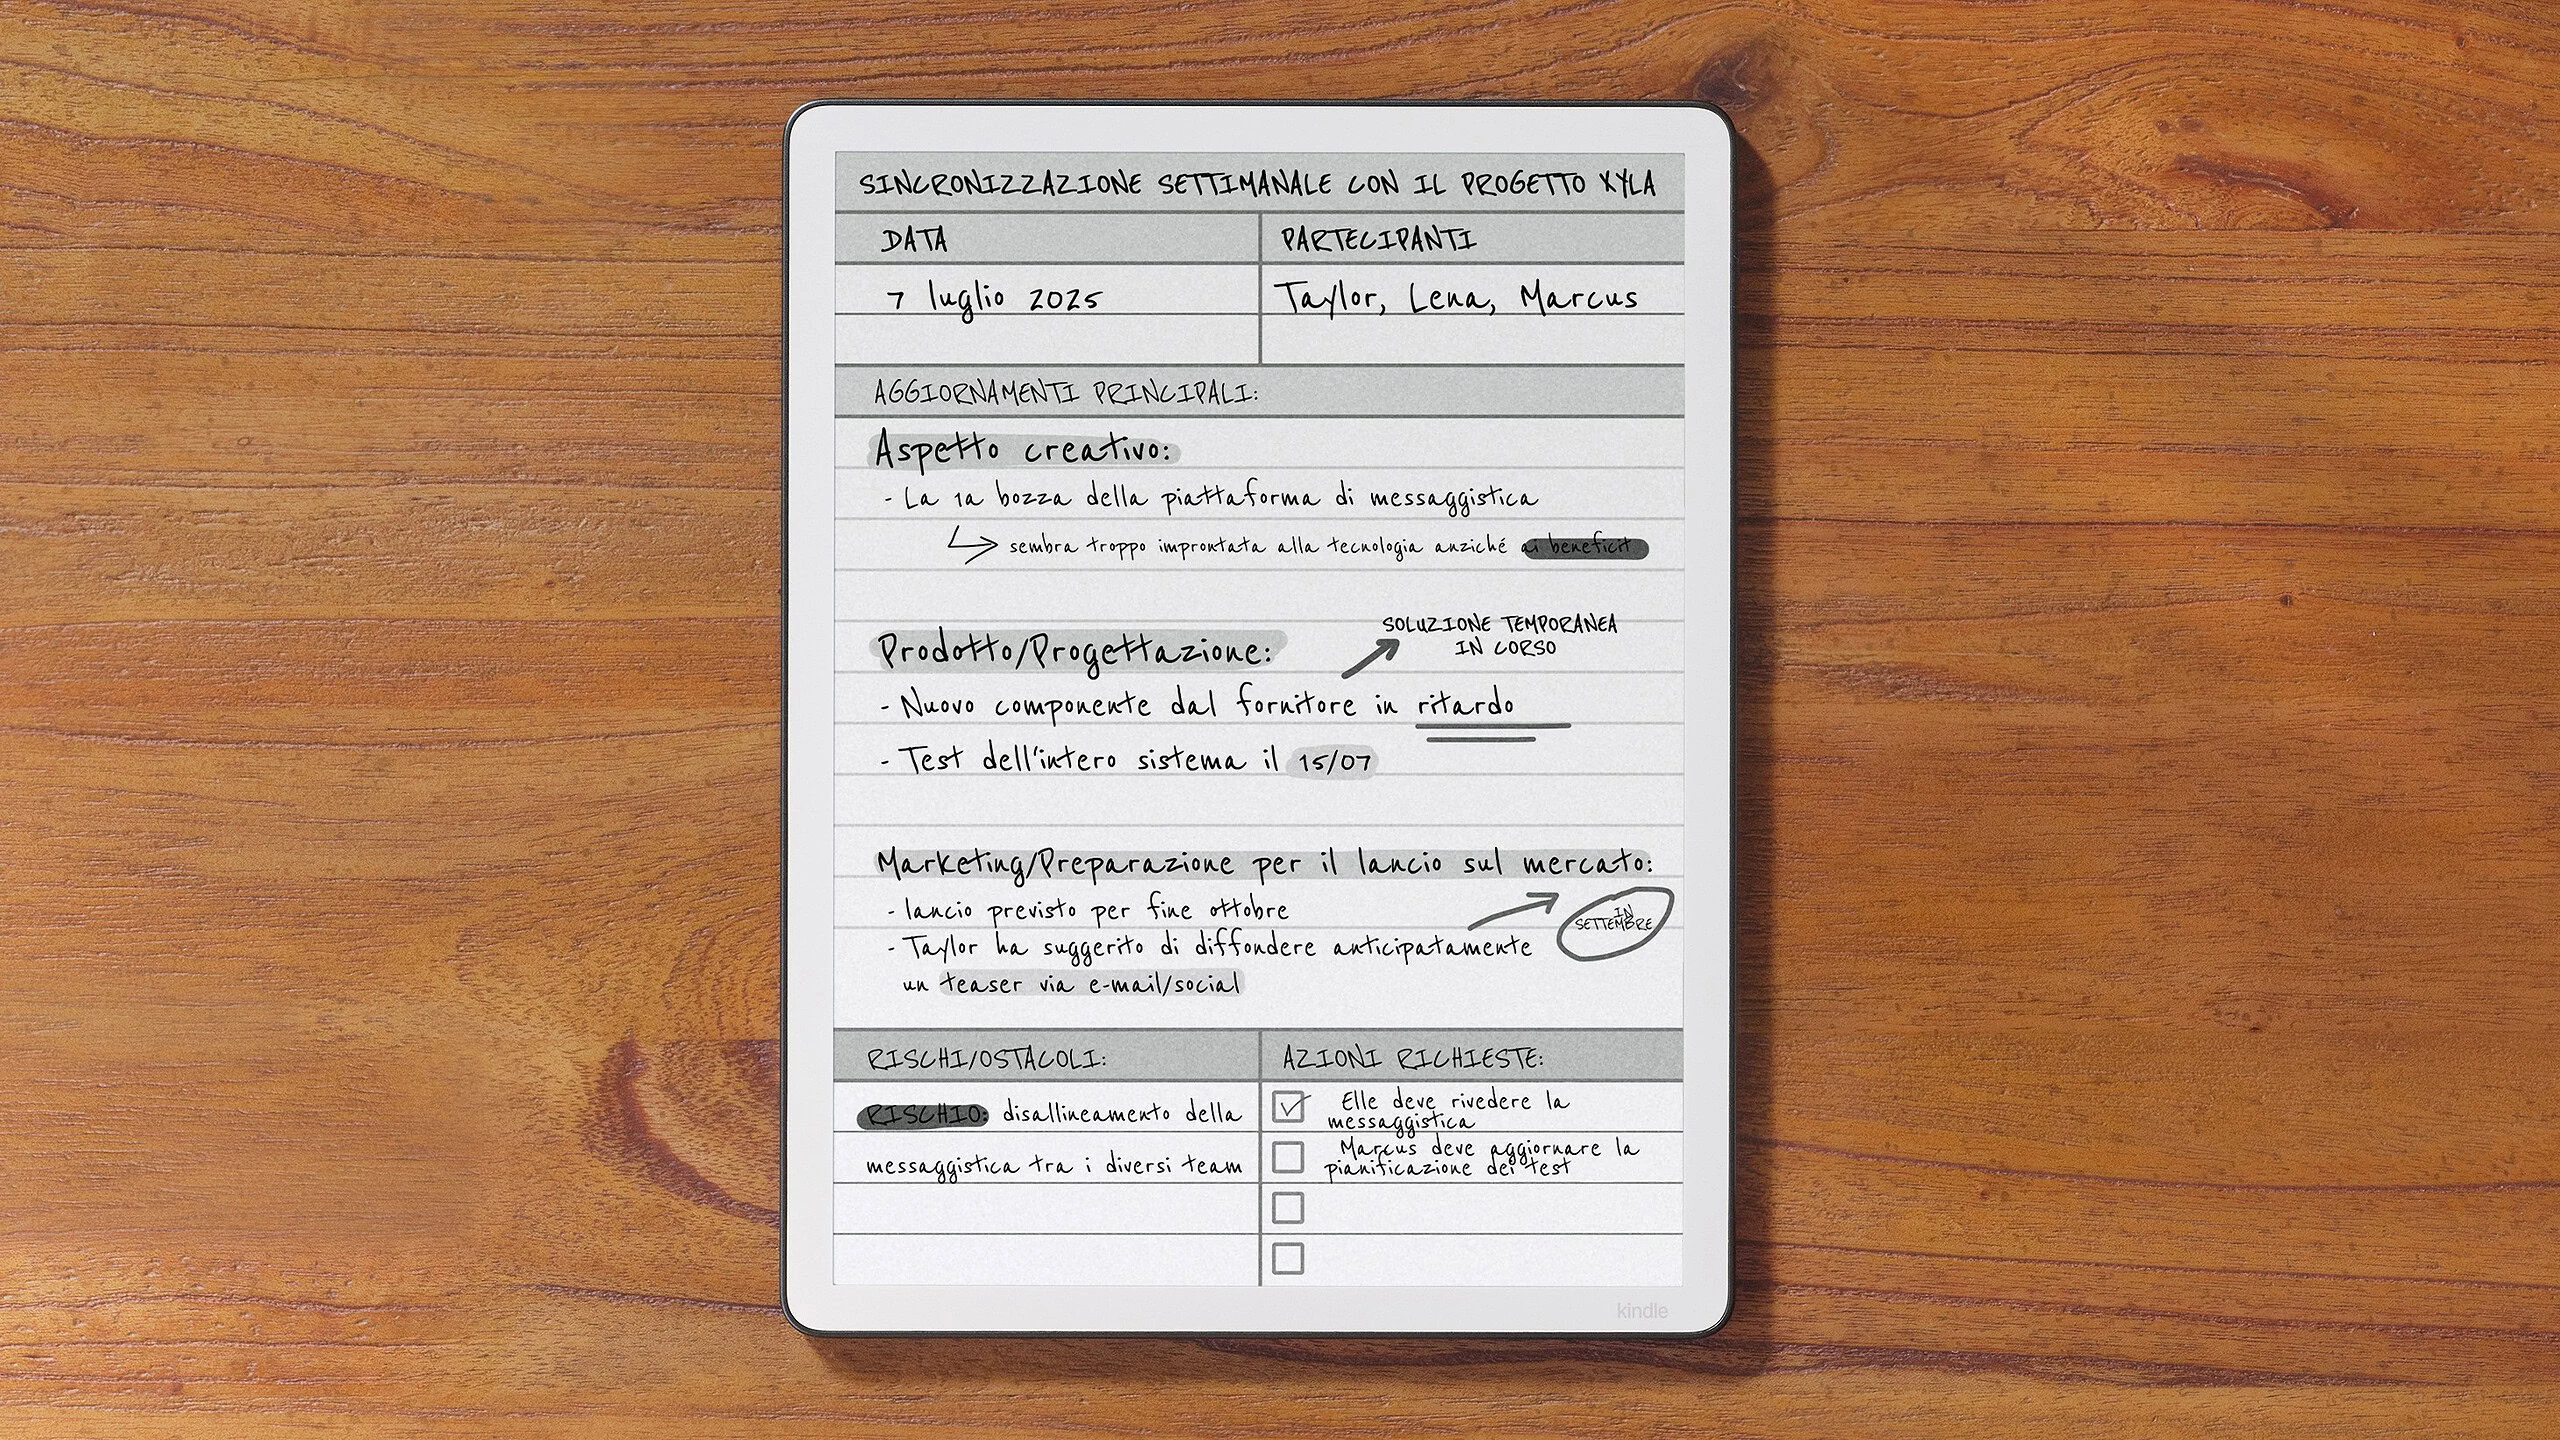 SINCRONIZZAZIONE SETTIMANALE CON IL PROGETTO XYLA
DATA
PARTECIPANTI
7 luglio 2025
Taylor, Lena, Marcus
AGGIORNAMENTI PRINCIPALI:
Aspetto creativo:
- La 1a bozza della piattaforma di messaggistica
sembra troppo improntata alla tecnologia anziché ai beneficit
SOLUZIONE TEMPORANEA
IN CORSO
Prodotto/Progettazione:
- Nuovo componente dal fornitore in ritardo
- Test dell'intero sistema il 15/07
Marketing/Preparazione per il lancio sul mercato:
- lancio previsto per fine ottobre
IN
SETTEMBRE
- Taylor ha suggerito di diffondere anticipatamente
un teaser via e-mail/social
RISCHI/OSTACOLI:
RISCHIO: disallineamento della
messaggistica tra i diversi team
AZIONI RICHIESTE:
Elle deve rivedere la
messaggistica
Marcus deve aggiornare la
pianificazione dei test
kindle